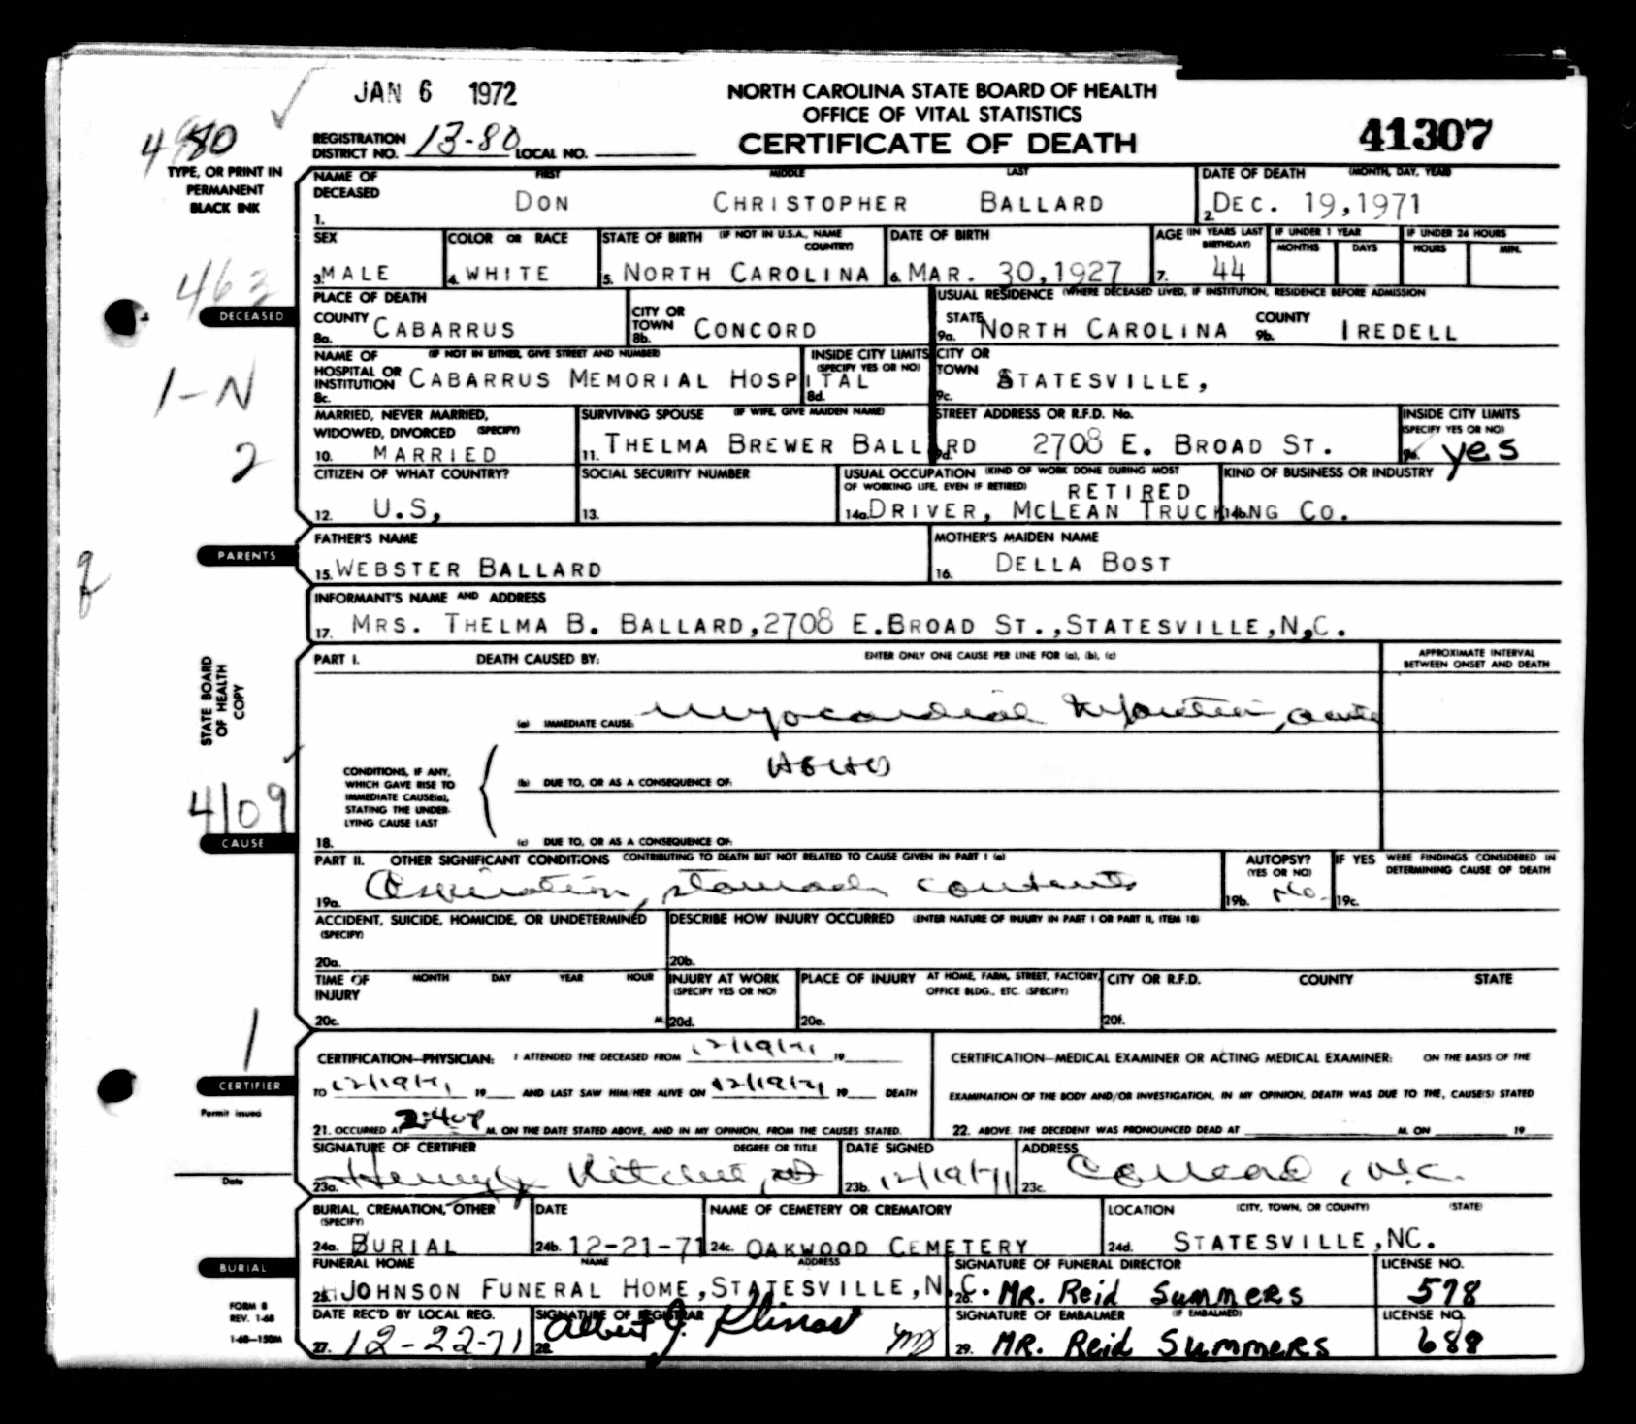 JAN 6 1972
NORTH CAROLINA STATE BOARD OF HEALTH
OFFICE OF VITAL STATISTICS
CERTIFICATE OF DEATH
41307
REGISTRATION DISTRICT NO. 13-80 LOCAL NO.
80
TYPE, OR PRINT IN
PERMANENT
BLACK INK
NAME OF DECEASED FIRST MIDDLE LAST
1. DON CHRISTOPHER BALLARD
DATE OF DEATH (MONTH, DAY, YEAR)
2. DEC. 19,1971
SEX
3. MALE
COLOR OR RACE
4. WHITE
STATE OF BIRTH (IF NOT IN U.S.A., NAME COUNTRY)
5. NORTH CAROLINA
DATE OF BIRTH
6. MAR. 30,1927
AGE (IN YEARS LAST BIRTHDAY)
7. 44
IF UNDER 1 YEAR
MONTHS DAYS
IF UNDER 24 HOURS
HOURS MIN.
463
DECEASED
PLACE OF DEATH
COUNTY
8a. CABARRUS
CITY OR TOWN
8b. CONCORD
USUAL RESIDENCE (WHERE DECEASED LIVED, IF INSTITUTION, RESIDENCE BEFORE ADMISSION
STATE
9a. NORTH CAROLINA
COUNTY
9b. IREDELL
NAME OF HOSPITAL OR INSTITUTION (IF NOT IN EITHER, GIVE STREET AND NUMBER)
8c. CABARRUS MEMORIAL HOSPITAL
INSIDE CITY LIMITS (SPECIFY YES OR NO)
8d.
CITY OR TOWN
9c. STATESVILLE,
1-N
2
MARRIED, NEVER MARRIED, WIDOWED, DIVORCED (SPECIFY)
10. MARRIED
SURVIVING SPOUSE (IF WIFE, GIVE MAIDEN NAME)
11. THELMA BREWER BALLARD
STREET ADDRESS OR R.F.D. No.
9d. 2708 E. BROAD ST.
INSIDE CITY LIMITS
(SPECIFY YES OR NO)
9e. yes
CITIZEN OF WHAT COUNTRY?
12. U.S,
SOCIAL SECURITY NUMBER
13.
USUAL OCCUPATION (KIND OF WORK DONE DURING MOST OF WORKING LIFE, EVEN IF RETIRED)
RETIRED
14a. DRIVER, MCLEAN TRUCKING CO.
KIND OF BUSINESS OR INDUSTRY
14b.
PARENTS
FATHER'S NAME
15. WEBSTER BALLARD
MOTHER'S MAIDEN NAME
16. DELLA BOST
INFORMANT'S NAME AND ADDRESS
17. MRS. THELMA B. BALLARD,2708 E.BROAD ST.,STATESVILLE,N.C.
STATE BOARD
OF HEALTH
COPY
PART I. DEATH CAUSED BY: ENTER ONLY ONE CAUSE PER LINE FOR (a), (b), (c)
APPROXIMATE INTERVAL
BETWEEN ONSET AND DEATH
(a) IMMEDIATE CAUSE Myocardial Infarction, acute
CONDITIONS, IF ANY,
WHICH GAVE RISE TO
IMMEDIATE CAUSE(a),
STATING THE UNDER-
LYING CAUSE LAST
(b) DUE TO, OR AS A CONSEQUENCE OF:
18. (c) DUE TO, OR AS A CONSEQUENCE OF:
4109
CAUSE
PART II. OTHER SIGNIFICANT CONDITIONS CONTRIBUTING TO DEATH BUT NOT RELATED TO CAUSE GIVEN IN PART I (a)
19a. Aspiration, stomach contents
AUTOPSY?
(YES OR NO)
19b. No.
IF YES WERE FINDINGS CONSIDERED IN DETERMINING CAUSE OF DEATH
19c.
ACCIDENT, SUICIDE, HOMICIDE, OR UNDETERMINED
(SPECIFY)
20a.
DESCRIBE HOW INJURY OCCURRED (ENTER NATURE OF INJURY IN PART I OR PART II, ITEM 18)
20b.
TIME OF INJURY MONTH DAY YEAR HOUR
20c. M.
INJURY AT WORK
(SPECIFY YES OR NO)
20d.
PLACE OF INJURY AT HOME, FARM, STREET, FACTORY, OFFICE BLDG., ETC. (SPECIFY)
20e.
CITY OR R.F.D. COUNTY STATE
20f.
1
CERTIFIER
Permit issued
Date
CERTIFICATION—PHYSICIAN: I ATTENDED THE DECEASED FROM 12/19/71 19
TO 12/19/71 19 AND LAST SAW HIM/HER ALIVE ON 12/19/71 19 DEATH
21. OCCURRED AT 2:40P M. ON THE DATE STATED ABOVE, AND IN MY OPINION, FROM THE CAUSES STATED.
CERTIFICATION—MEDICAL EXAMINER OR ACTING MEDICAL EXAMINER: ON THE BASIS OF THE
EXAMINATION OF THE BODY AND/OR INVESTIGATION, IN MY OPINION, DEATH WAS DUE TO THE, CAUSE(S) STATED
22. ABOVE. THE DECEDENT WAS PRONOUNCED DEAD AT M. ON 19
SIGNATURE OF CERTIFIER DEGREE OR TITLE
23a. Henry
DATE SIGNED
23b. 12/19/71
ADDRESS
23c. Concord, N.C.
BURIAL
BURIAL, CREMATION, OTHER
(SPECIFY)
24a. BURIAL
DATE
24b. 12-21-71
NAME OF CEMETERY OR CREMATORY
24c. OAKWOOD CEMETERY
LOCATION (CITY, TOWN, OR COUNTY) (STATE)
24d. STATESVILLE,NC.
FUNERAL HOME NAME ADDRESS
25. JOHNSON FUNERAL HOME,STATESVILLE,N.C.
SIGNATURE OF FUNERAL DIRECTOR
26. MR. Reid Summers
LICENSE NO.
578
FORM 8
REV. 1-68
1-68—150M
DATE REC'D BY LOCAL REG.
27. 12-22-71
SIGNATURE OF REGISTRAR
28. Albert J. Klimas
SIGNATURE OF EMBALMER (IF EMBALMED)
29. MR. Reid Summers
LICENSE NO.
688